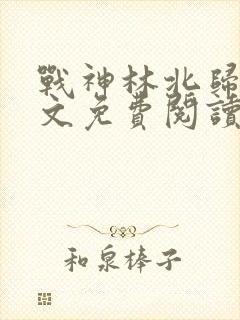 戰神林北歸
文免費閱讀
和泉棒子